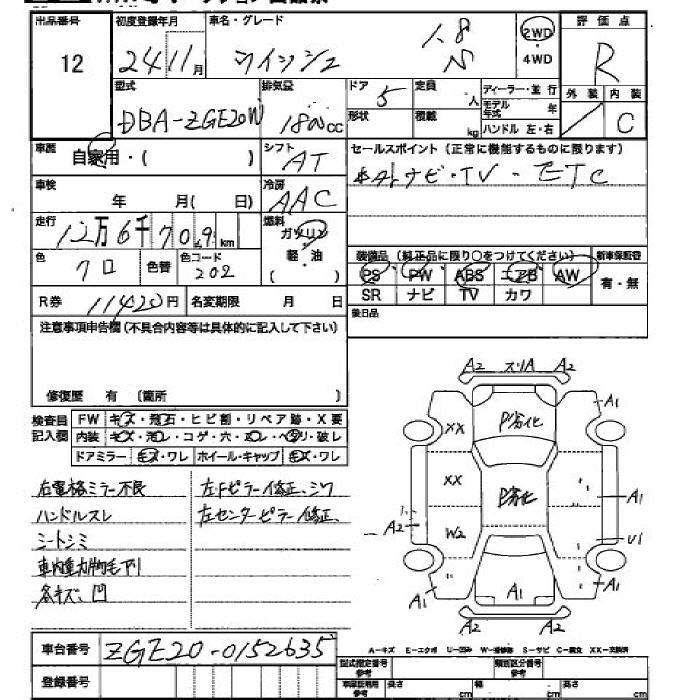 出品番号 初度登録年月 車名・グレード 2WD 評価点
12 24 11月 ウィッシュ 1.8 S 4WD R
型式 排気量 ドア 定員 ディーラー・並行 外装 内装
DBA-ZGE20W 1800cc 5 人 モデル年式 年 / C
形状 積載 kg ハンドル 左・右
車歴 自家用・( ) シフト AT セールスポイント(正常に機能するものに限ります)
車検 年 月( 日) 冷房 AAC ナビ・TV・ETC
走行 12万6千709km 燃料 ガソリン
軽・油
( )
色 クロ 色替 色コード 202
装備品(純正品に限り○をつけてください) 新車保証書
PS PW ABS エアB AW 有・無
SR ナビ TV カワ
R券 11420円 名変期限 月 日 後日品
注意事項申告欄(不具合内容等は具体的に記入して下さい)
修復歴 有 〔箇所 〕
検査員記入欄 FW キズ・飛石・ヒビ割・リペア跡・X要
内装 キズ・汚レ・コゲ・穴・ヌレ・ヘタリ・破レ
ドアミラー キズ・ワレ ホイール・キャップ キズ・ワレ
右電格ミラー不良 左Fピラー修正、シワ
ハンドルスレ 左センターピラー修正、
シートシミ
車内動物毛有リ
各キズ、凹
A2 スリA A2
A1
XX P劣化
XX P劣化
A1
A2 W2 U1
A1 A1 A1
A2 A2
車台番号 ZGE20-0152635
A-キズ E-エクボ U-凹み W-補修跡 S-サビ C-腐食 XX-交換済
登録番号 型式指定番号 参考 類別区分番号 参考
車庫証明用 参考 長さ cm 幅 cm 高さ cm